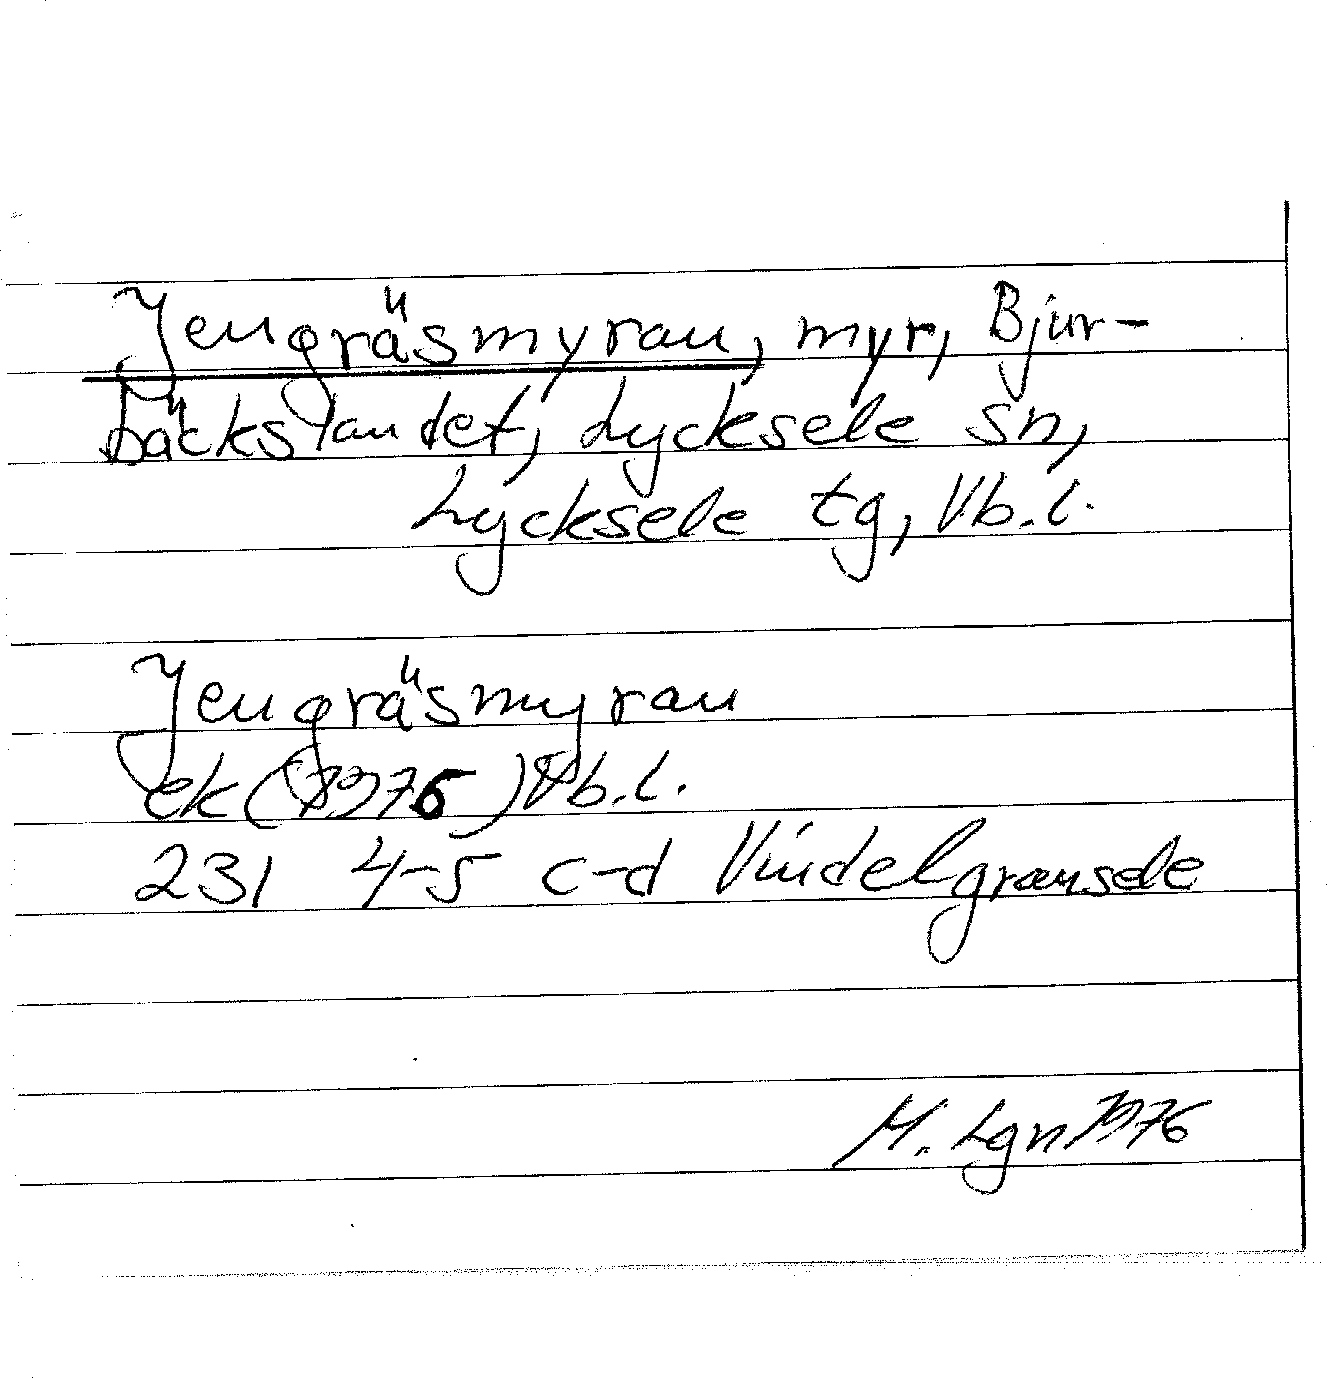 Jengräsmyran, myr, Bjur-
bäckslandet, Lycksele sn,
Lycksele tg, Vb.l.
Jengräsmyran
ek (1976) Vb.l.
231 4-5 c-d Vindelgransele
M. Lgn 1976